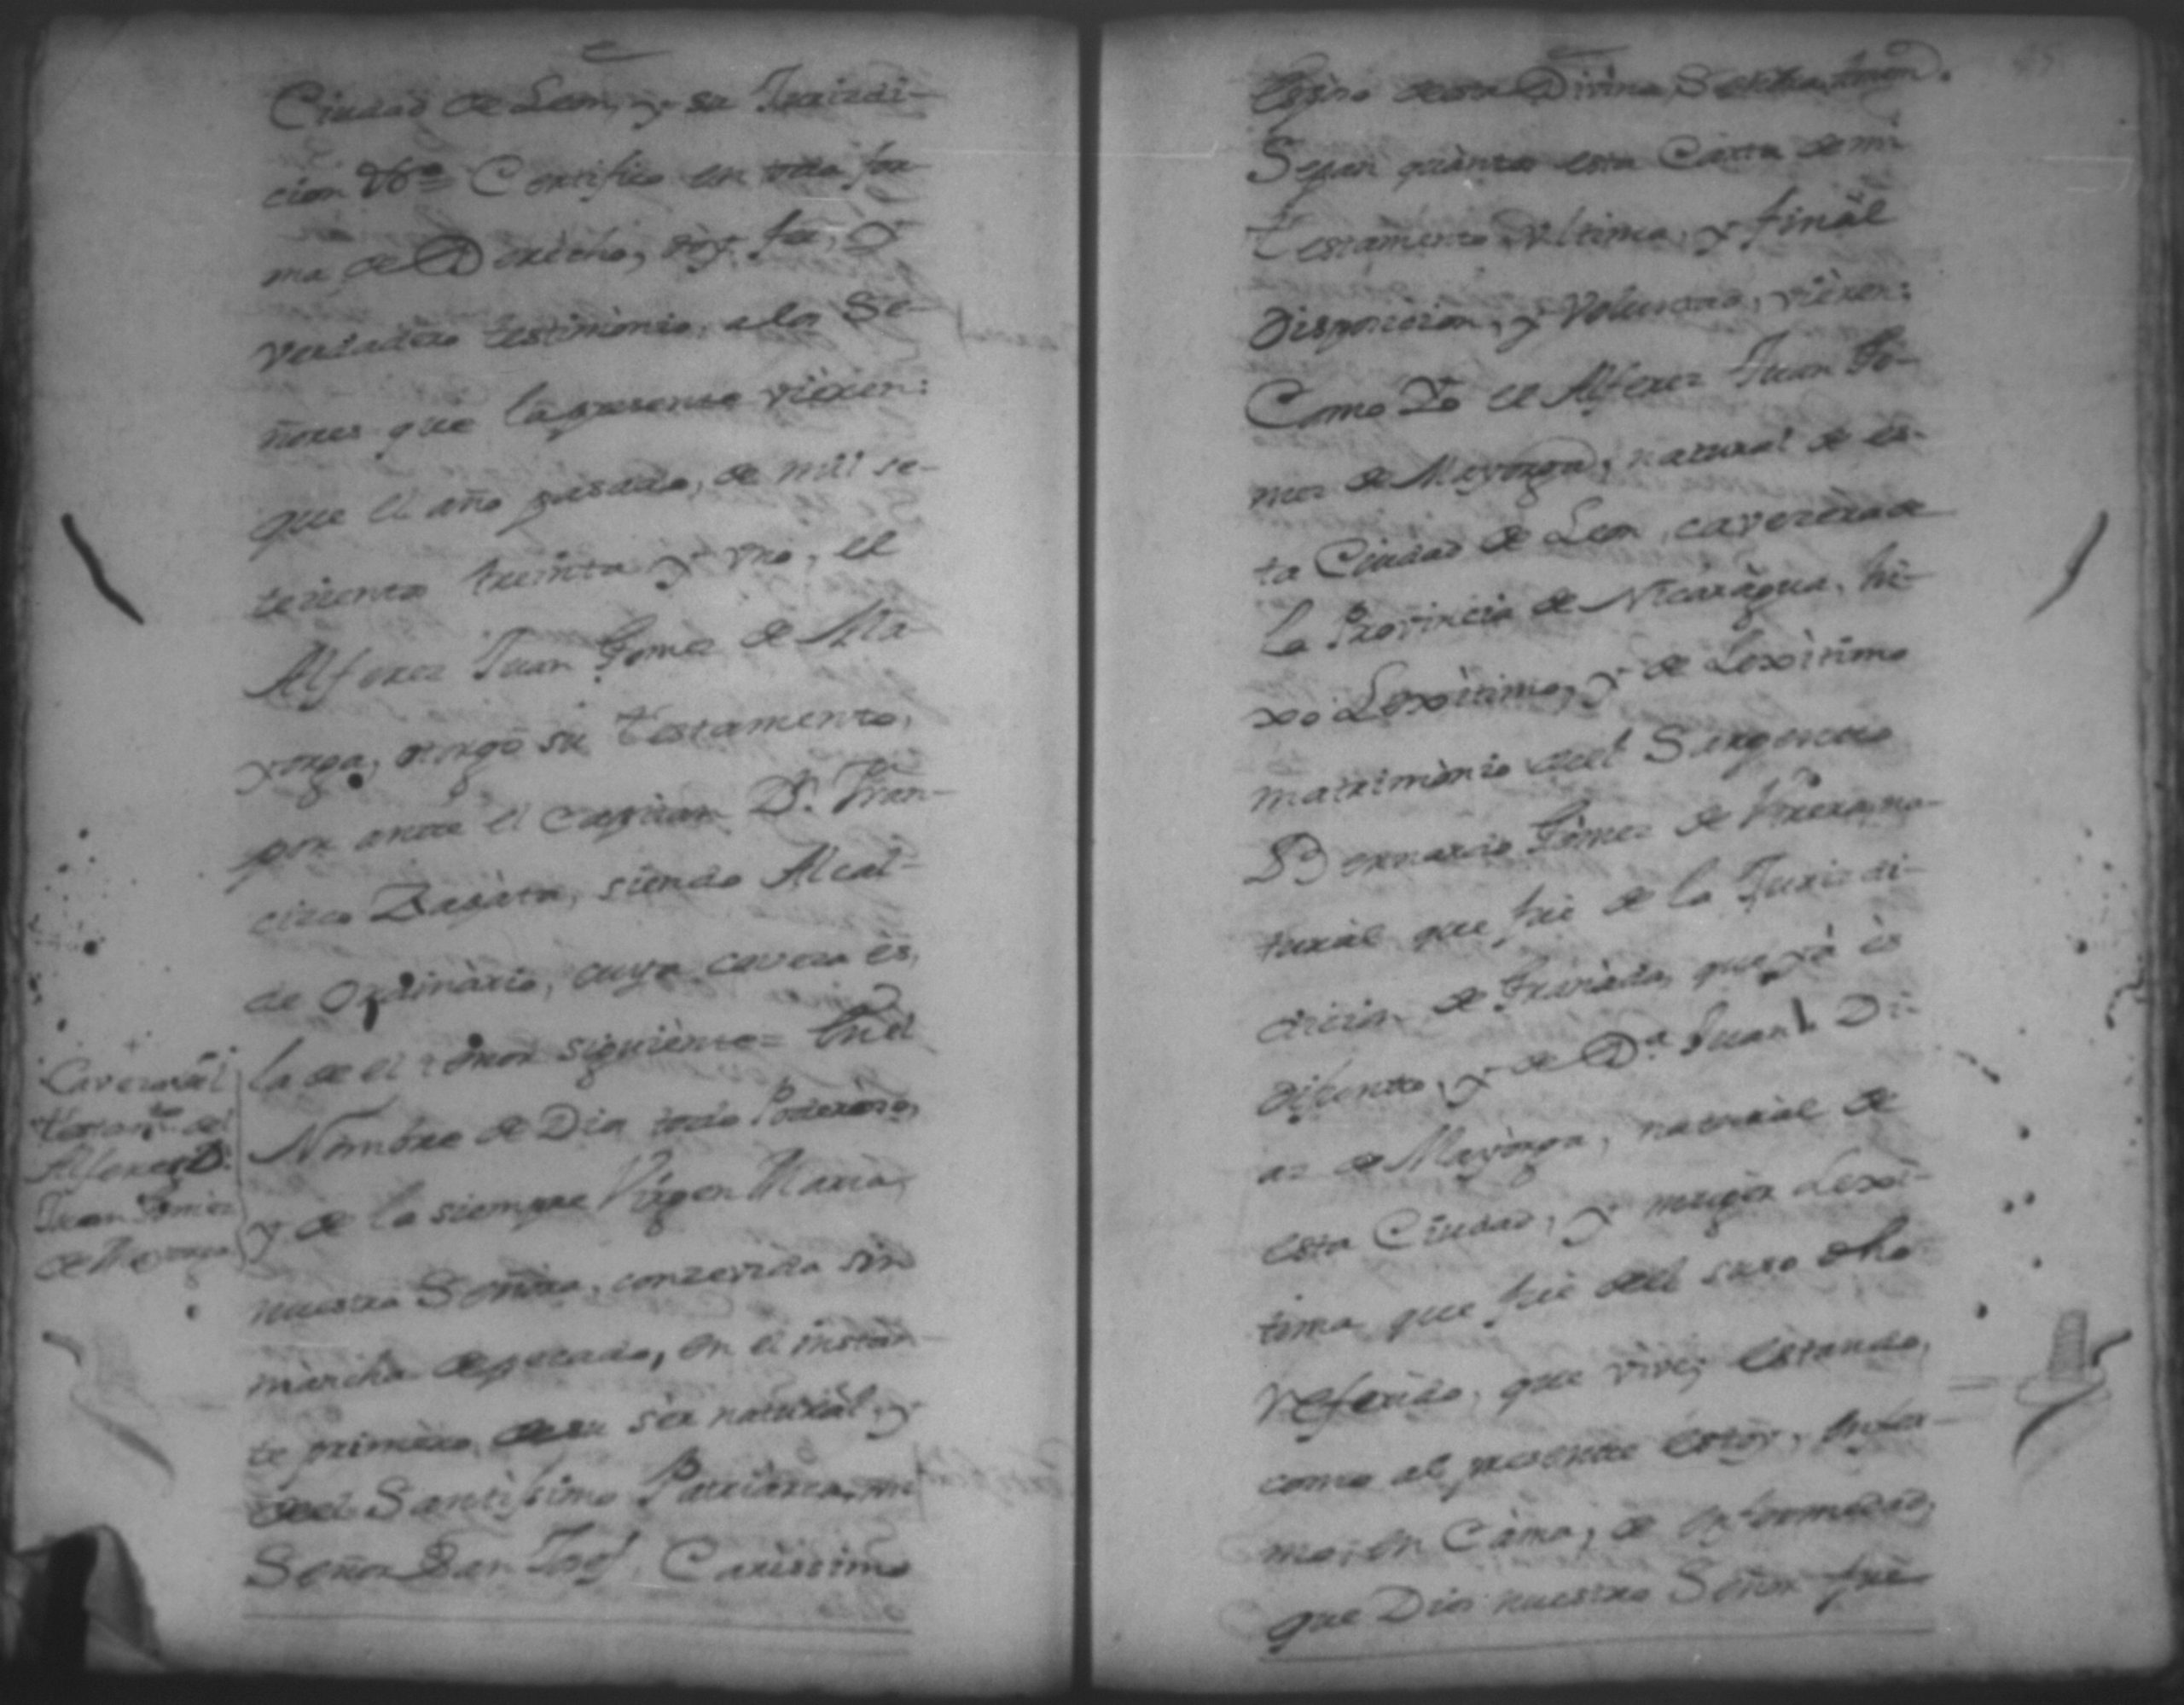 Ciudad de Leon, y su Jurisdi-
cion &a. Certifico en toda for
ma de Derècho, doy feè, y
verdadero testimònio, a los Se-
ñores que la presente vièren:
que el año pasado, de mìl se-
tecientos treìnta y vno, el
Alferez Juan Gomez de Ma-
yorga, otorgò su testamento,
por ante el Capitan Dn. Fran-
cisco Zapàta, sièndo Alcal-
de Ordinàrio, cuya caveza ès,
la de el tenor siguiènte = En el
Nombre de Dios todo Poderoso,
y de la siempre Vìrgen Maria,
nuestra Señora, conzevida sìn
màncha de pecado, en el instàn-
te primèro, de su sèr naturàl, y
del Santìssimo Patriàrca, mi
Señor San Josef, Carìssimo
Caveza del
testamto. del
Alferez Dn.
Juan Gomez
de Mayorga
Espòso de su Divina
Sepan quàntos esta Carta de mi
testamènto, vltima, y finàl
disposicion, y Voluntad, vièren:
Como Yo el Alferez Juan Gò-
mez de Mayorga, natural de es-
ta Ciudad de Leon, cavezèra de
la Provincia de Nicaràgua, hi-
xo Lexìtimo, y de Lexìtimo
matrimònio del Sargento
Bernardo Gòmez de Vrrera, na-
turàl que fuè de la Jurisdi-
ciòn de Granàda, que yà ès
difunto, y de Da. Juana Di-
az de Mayòrga, naturàl de
esta Ciudad, y mugèr Lexì-
tima que fuè del suso dho
Referido, que vive; estando,
como al presente estòy, enfer-
mo, en Càma, de enfermedad,
que Dios nuestro Señor fuè